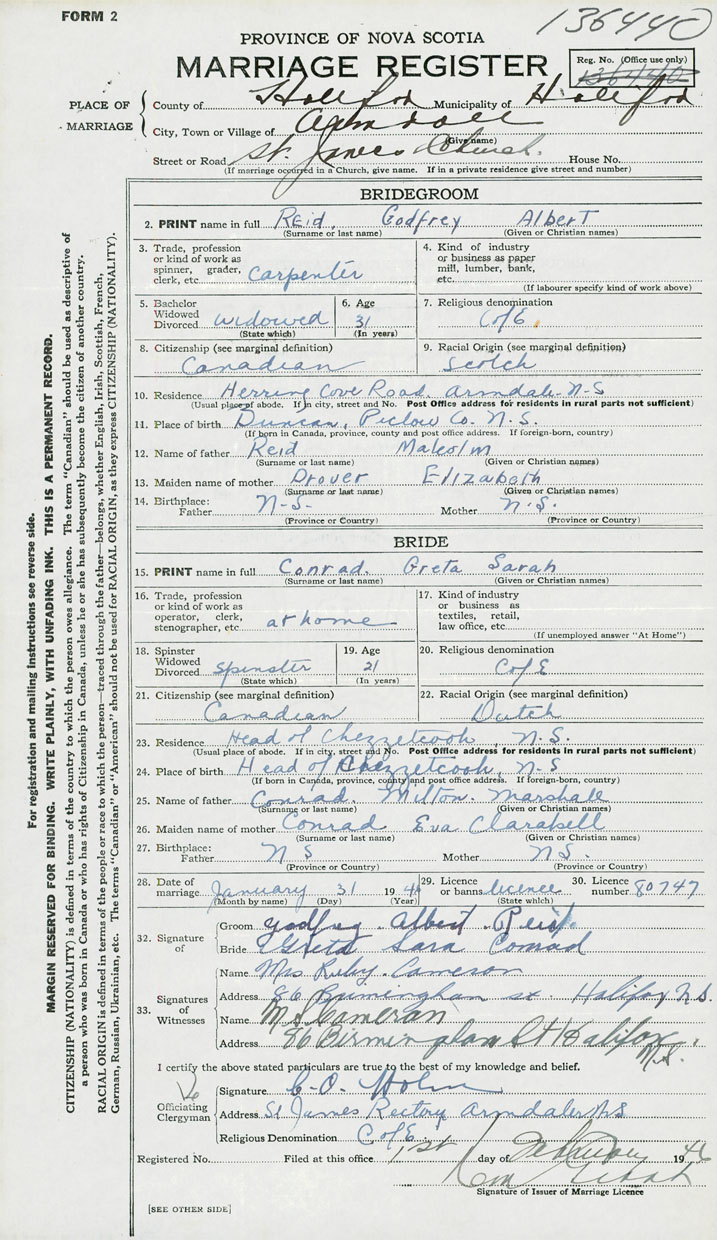 FORM 2
136440
PROVINCE OF NOVA SCOTIA
MARRIAGE REGISTER
Reg. No. (Office use only)
136440
PLACE OF MARRIAGE
County of Halifax Municipality of Halifax
City, Town or Village of Armdale
(Give name)
Street or Road St. James Church. House No.
(If marriage occurred in a Church, give name. If in a private residence give street and number)
For registration and mailing instructions see reverse side.
MARGIN RESERVED FOR BINDING. WRITE PLAINLY, WITH UNFADING INK. THIS IS A PERMANENT RECORD.
CITIZENSHIP (NATIONALITY) is defined in terms of the country to which the person owes allegiance. The term "Canadian" should be used as descriptive of
a person who was born in Canada or who has rights of Citizenship in Canada, unless he or she has subsequently become the citizen of another country.
RACIAL ORIGIN is defined in terms of the people or race to which the person—traced through the father—belongs, whether English, Irish, Scottish, French,
German, Russian, Ukrainian, etc. The terms "Canadian" or "American" should not be used for RACIAL ORIGIN, as they express CITIZENSHIP (NATIONALITY).
BRIDEGROOM
2. PRINT name in full Reid, Godfrey Albert
(Surname or last name) (Given or Christian names)
3. Trade, profession or kind of work as spinner, grader, clerk, etc. Carpenter
4. Kind of industry or business as paper mill, lumber, bank, etc.
(If labourer specify kind of work above)
5. Bachelor Widowed Divorced widowed
(State which)
6. Age 31
(In years)
7. Religious denomination C of E.
8. Citizenship (see marginal definition) Canadian
9. Racial Origin (see marginal definition) Scotch
10. Residence Herring Cove Road, Armdale N-S
(Usual place of abode. If in city, street and No. Post Office address for residents in rural parts not sufficient)
11. Place of birth Duncan, Pictow Co. N.S.
(If born in Canada, province, county and post office address. If foreign-born, country)
12. Name of father Reid Malcolm
(Surname or last name) (Given or Christian names)
13. Maiden name of mother Drover Elizabeth
(Surname or last name) (Given or Christian names)
14. Birthplace: Father N-S. Mother N.S.
(Province or Country) (Province or Country)
BRIDE
15. PRINT name in full Conrad. Greta Sarah
(Surname or last name) (Given or Christian names)
16. Trade, profession or kind of work as operator, clerk, stenographer, etc. at home
17. Kind of industry or business as textiles, retail, law office, etc.
(If unemployed answer "At Home")
18. Spinster Widowed Divorced Spinster
(State which)
19. Age 21
(In years)
20. Religious denomination C of E
21. Citizenship (see marginal definition) Canadian
22. Racial Origin (see marginal definition) Dutch
23. Residence Head of Chezzetcook, N.S.
(Usual place of abode. If in city, street and No. Post Office address for residents in rural parts not sufficient)
24. Place of birth Head of Chezzetcook, N-S
(If born in Canada, province, county and post office address. If foreign-born, country)
25. Name of father Conrad. Milton. Marshall
(Surname or last name) (Given or Christian names)
26. Maiden name of mother Conrad Eva Clarabell
(Surname or last name) (Given or Christian names)
27. Birthplace: Father N S Mother N S.
(Province or Country) (Province or Country)
28. Date of marriage January 31 1946
(Month by name) (Day) (Year)
29. Licence or banns licence
(State which)
30. Licence number 80747
32. Signature of
Groom Godfrey Albert Reid
Bride Greta Sara Conrad
33. Signatures of Witnesses
Name Mrs Ruby Cameron
Address 86 Birmingham st. Halifax N.S.
Name M Cameran
Address 86 Birmingham St Halifax N.S.
I certify the above stated particulars are true to the best of my knowledge and belief.
Officiating Clergyman
Signature
Address St James Rectory Armdale N S
Religious Denomination C of E
Registered No. Filed at this office 1st day of February 1946
Signature of Issuer of Marriage Licence
[SEE OTHER SIDE]